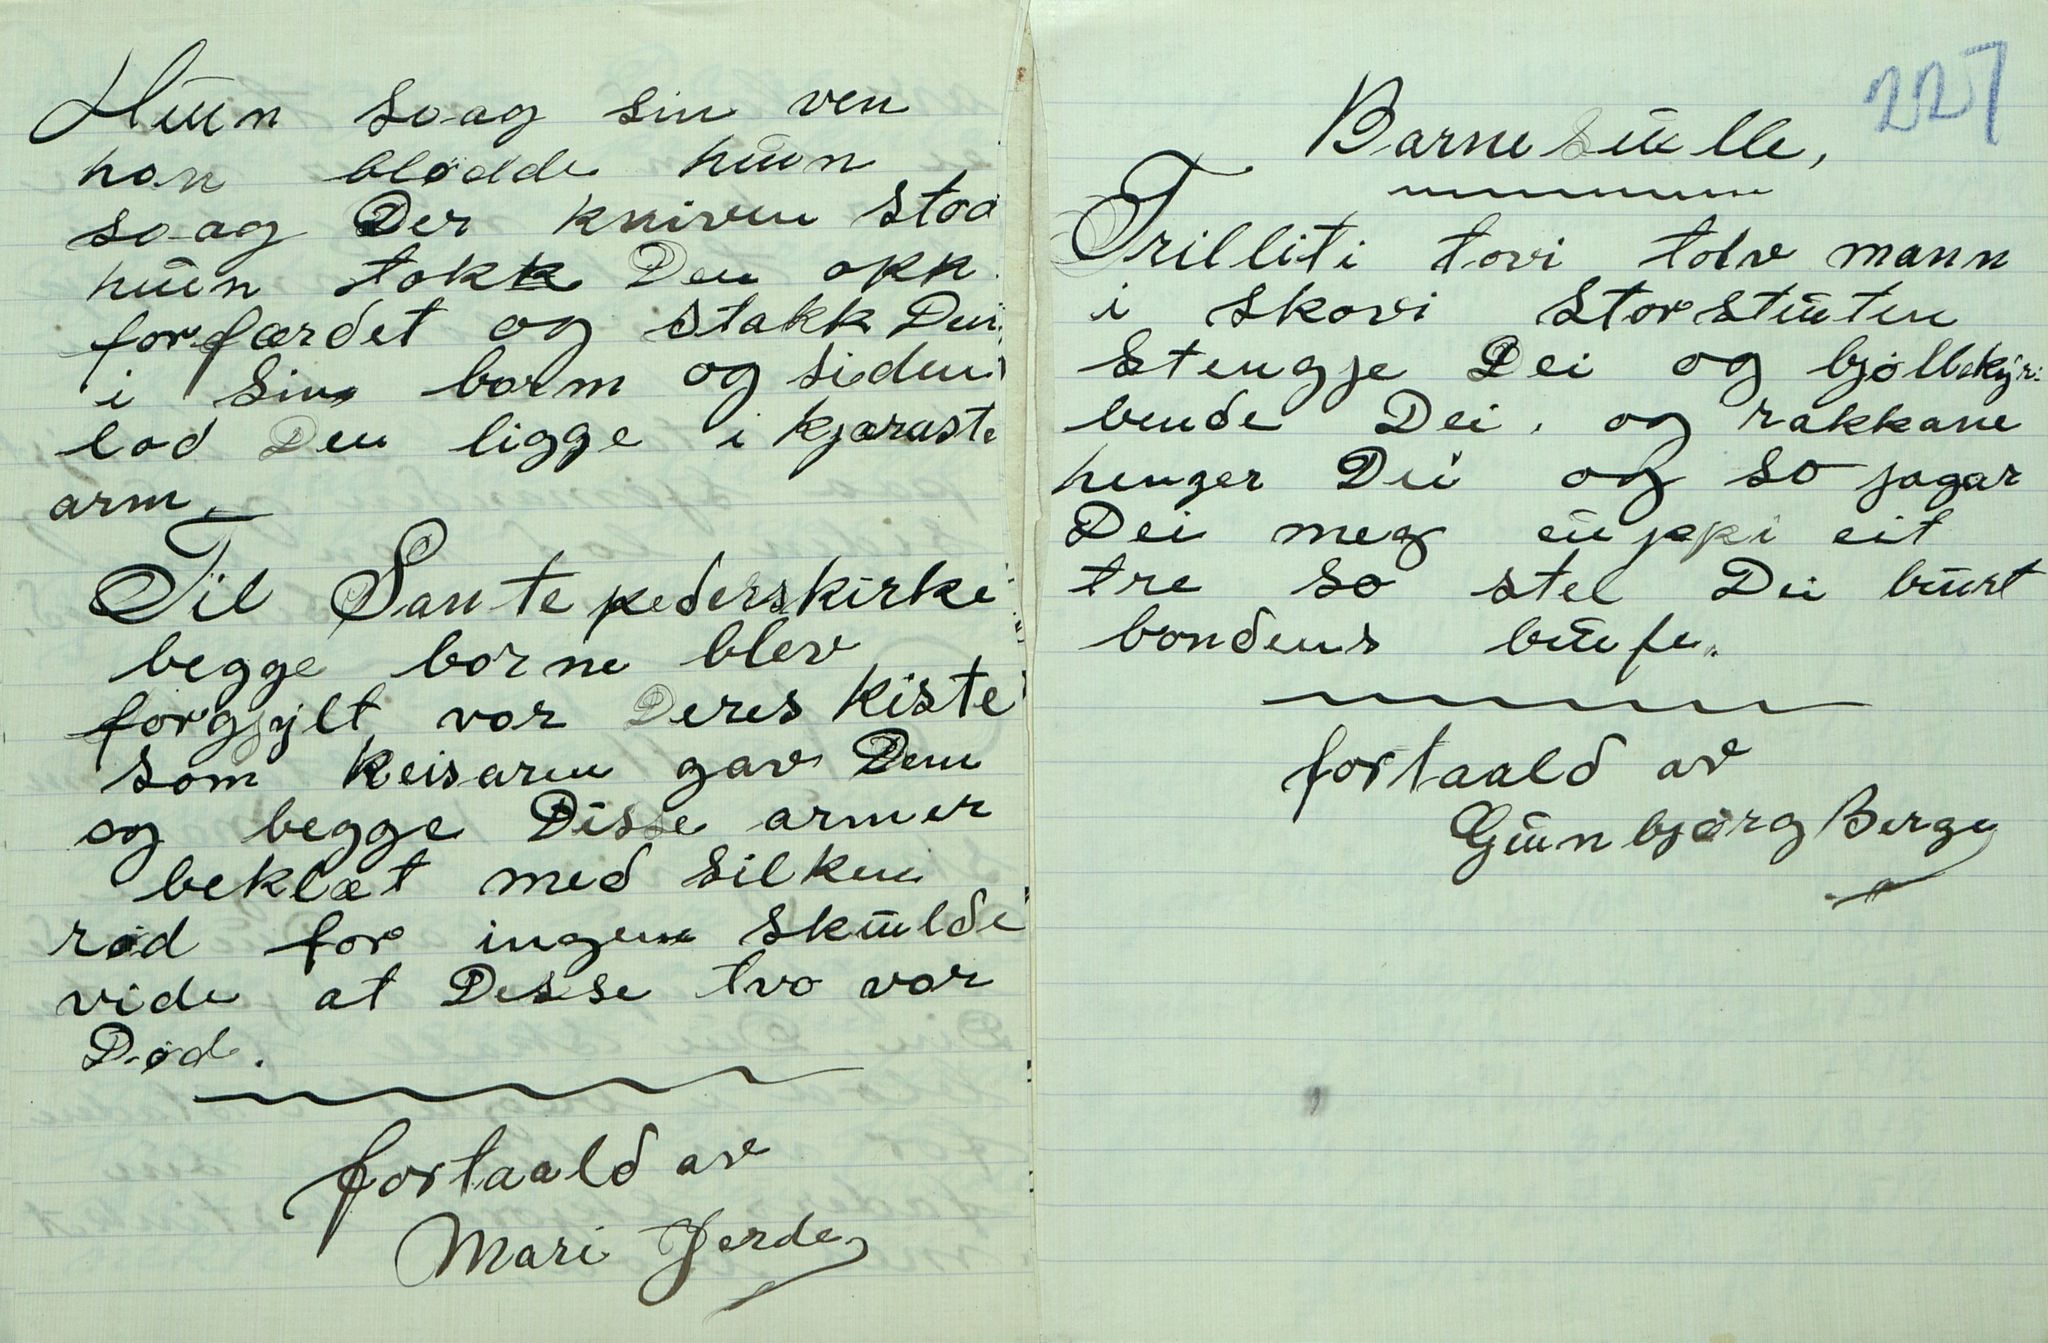 Huun so-ag sin ven
han blødde huun
so-ag Der kniven stod
huun tokk Den opp
forfærdet og stakk Den
i sin barm og siden
lod Den ligge i kjæraste
arm.
Til Sante pederskirke
begge borne blev
forgjylt var Deres kiste
som keisaren gav Dem
og begge Disse armer
beklæt med silken
rød for ingen skulde
vide at Desse tvo var
Død.
fortaald av
Mari Jerde
227
Barnesulle,
Trilliti tovi tolv mann
i skovi storstuten
stengje Dei og bjøllekyri
bende Dei, og rakkane
henger Dei og so jagar
Dei meg uppi eit
tre so stel Dei burt
bondens bufe.
fortaald av
Gunbjørg Berge